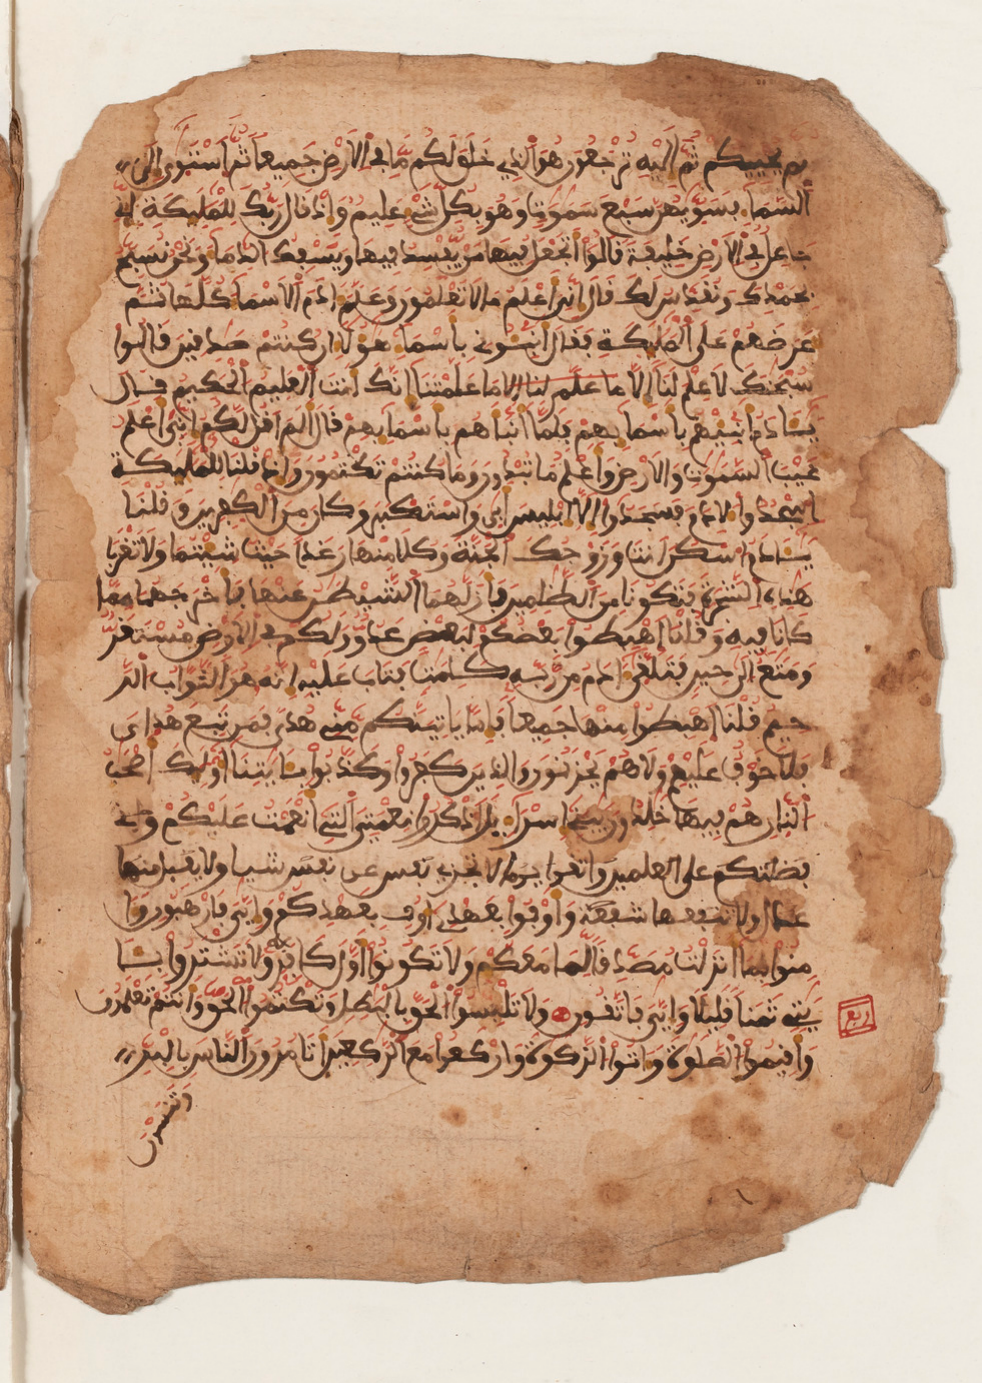 ثم يحييكم ثم إليه ترجعون هو الذي خلق لكم ما في الارض جميعا ثم استوى إلى
السماء فسويهن سبع سموت وهو بكل شيء عليم وإذ قال ربك للمليكة إني
جاعل في الارض خليفة قالوا أتجعل فيها من يفسد فيها ويسفك الدماء ونحن نسبح
بحمدك ونقدس لك قال إني أعلم ما لا تعلمون وعلم ءادم الاسماء كلها ثم
عرضهم على المليكة فقال أنبئوني بأسماء هؤلاء ان كنتم صدقين قالوا
سبحنك لا علم لنا إلا ما علم لنا إلا ما علمتنا إنك أنت العليم الحكيم قال
يـادم أنبيهم بأسمايهم فلما أنبأهم بأسمايهم قال ألم اقل لكم إني أعلم
غيب السموت والارض وأعلم ما تبدون وما كنتم تكتمون وإذ قلنا للمليكة
اسجدوا لادم فسجدوا إلا إبليس أبى واستكبر وكان من الكفرين وقلنا
يـادم اسكن أنت وزوجك الجنة وكلا منها رغدا حيث شيتما ولا تقربا
هذه الشجرة فتكونا من الظلمين فأزلهما الشيطن عنها فأخرجهما مما
كانا فيه وقلنا اهبطوا بعضكم لبعض عدو ولكم في الارض مستقر
ومتع الى حين فتلقى ءادم من ربه كلمت فتاب عليه إنه هو التواب الر
حيم قلنا اهبطوا منها جميعا فإما ياتينكم مني هدى فمن تبع هداي
فلا خوف عليهم ولا هم يحزنون والذين كفروا وكذبوا بـايتنا أوليك أصحب
النار هم فيها خلدون يبني إسراءيل اذكروا نعمتي التي أنعمت عليكم وأني
فضلتكم على العلمين واتقوا يوما لا تجزي نفس عن نفس شيا ولا يقبل منها
عدل ولا تنفعها شفعة وأوفوا بعهدي أوف بعهدكم وإيي فارهبون وءا
منوا بما أنزلت مصدقا لما معكم ولا تكونوا أول كافر ولا تشتروا بـا
يتي ثمنا قليلا وإيي فاتقون ولا تلبسوا الحق بالبطل وتكتموا الحق وأنتم تعلمون
ربع
وأقيموا الصلوة وءاتوا الزكوة واركعوا مع الركعين أتامرون الناس بالبر
وتنسون